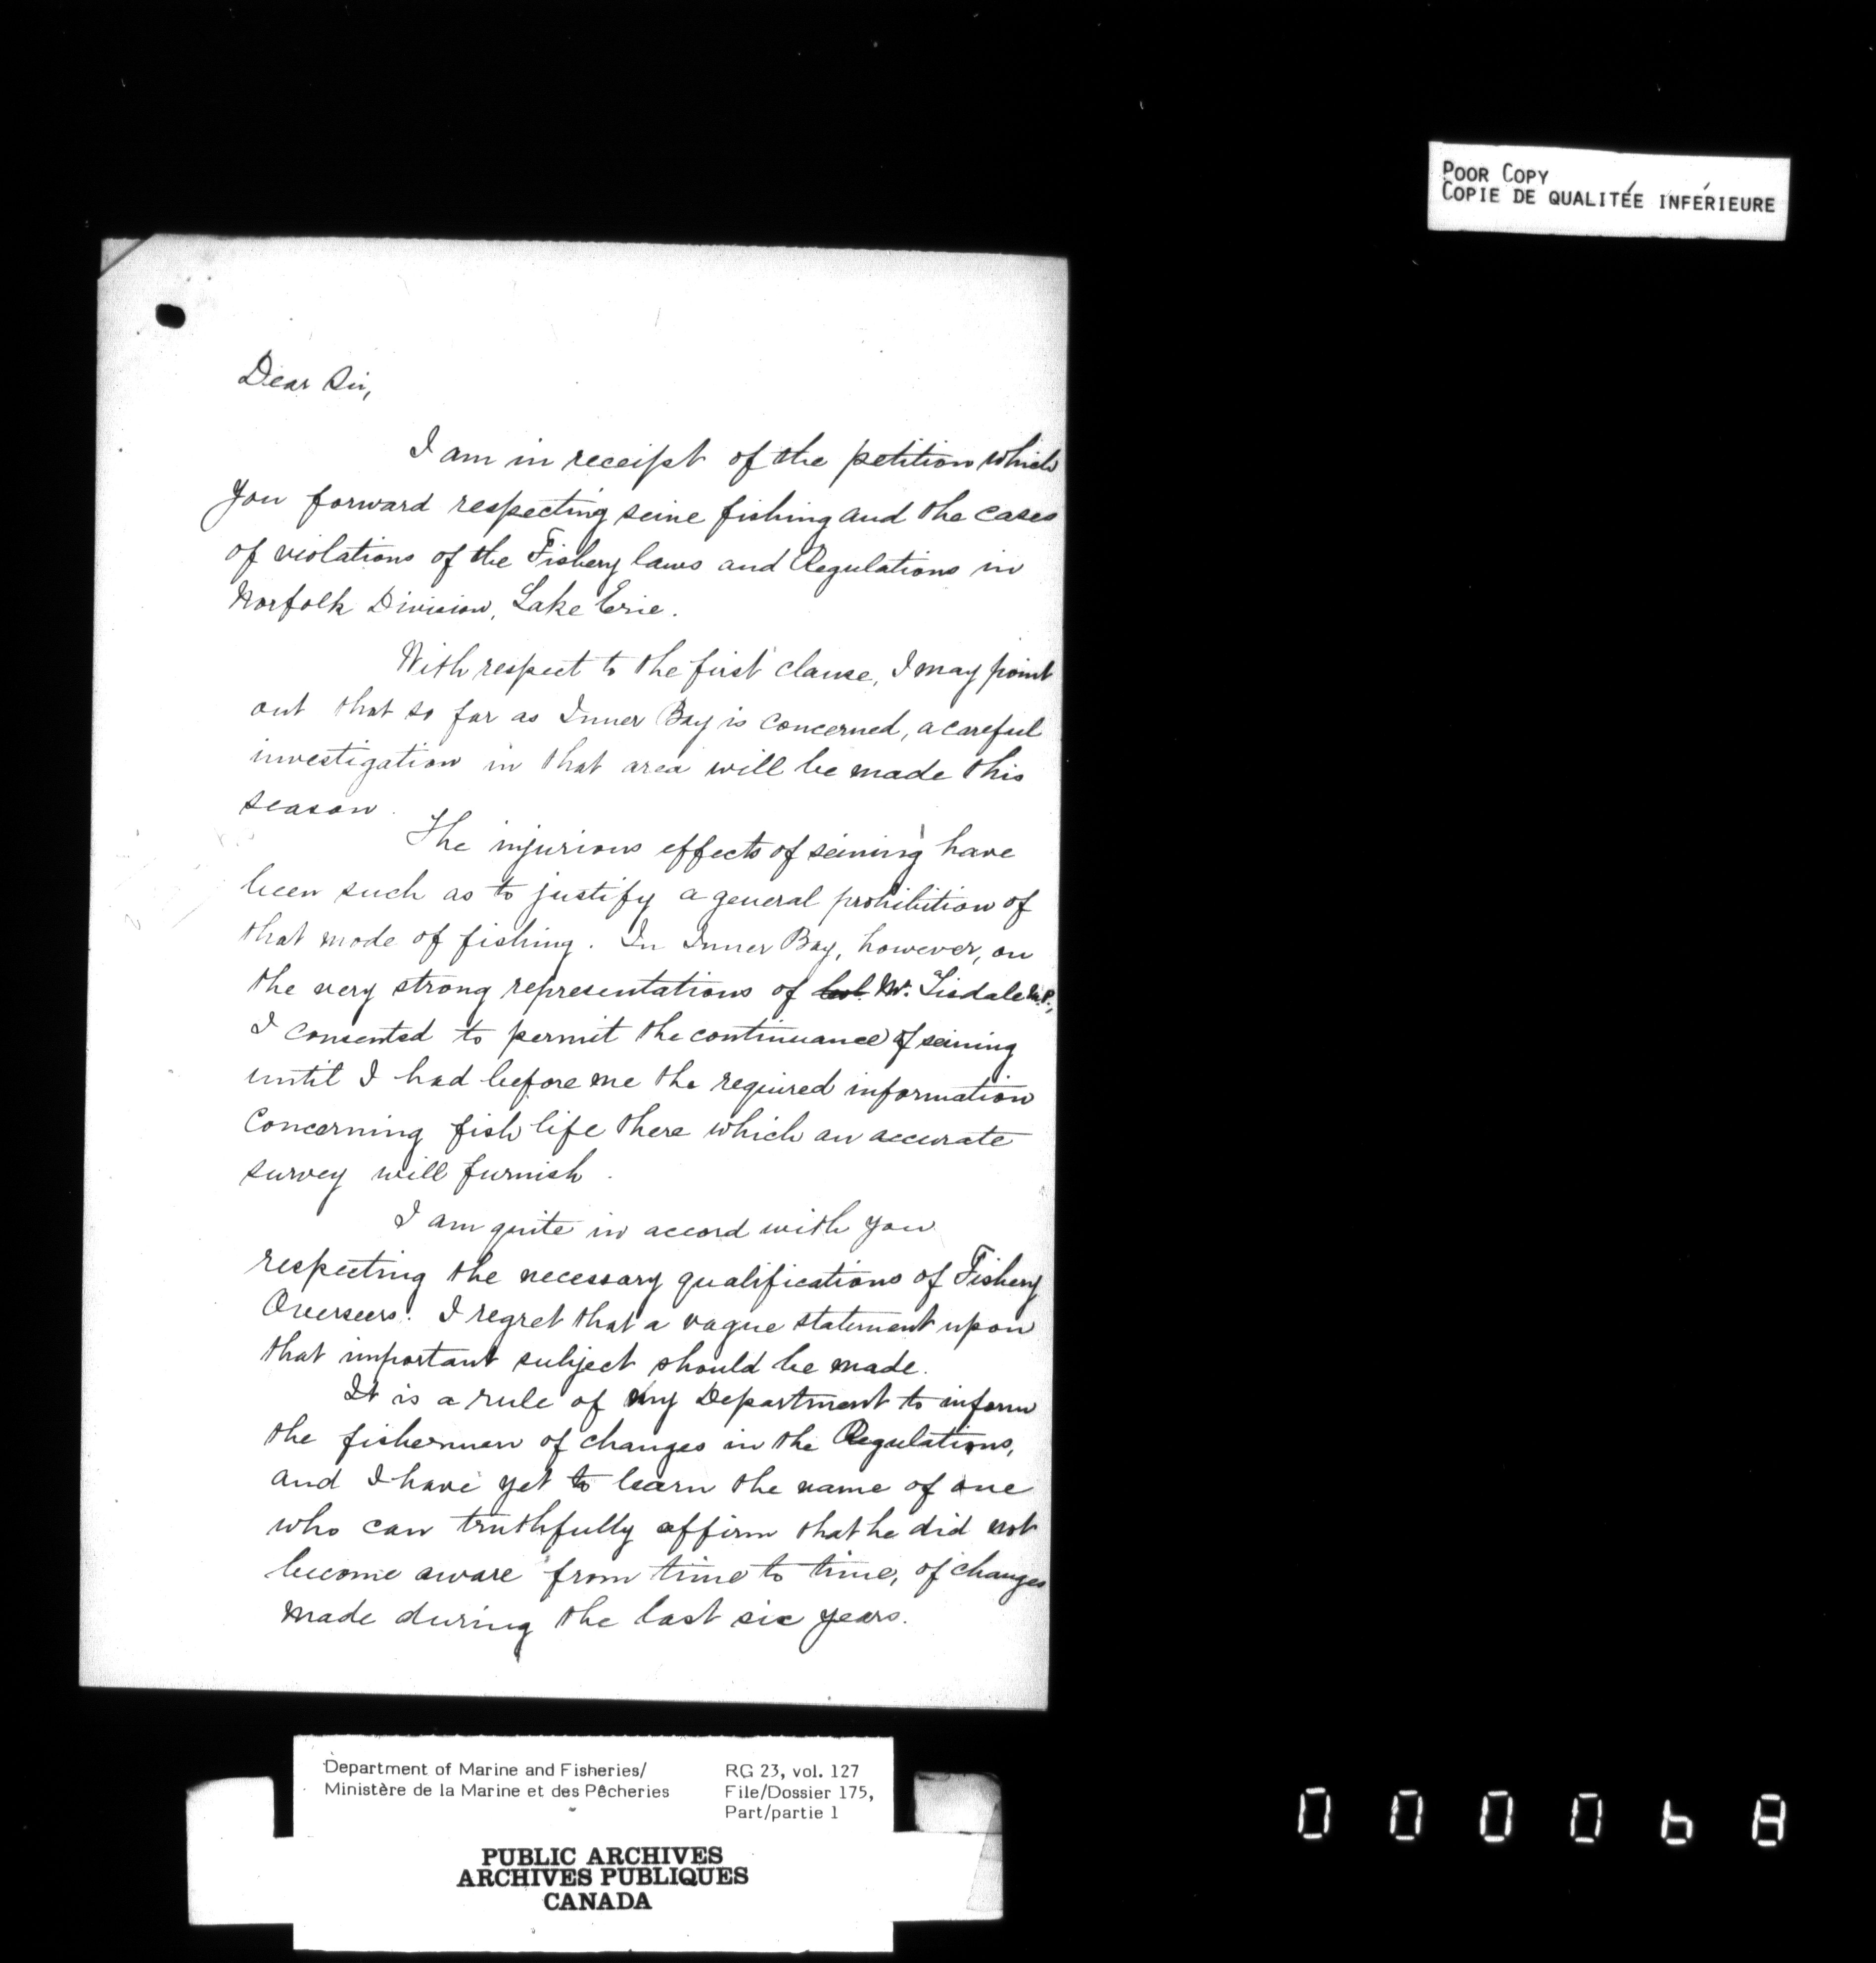 POOR COPY
COPIE DE QUALITÉE INFÉRIEURE
Dear Sir,
I am in receipt of the petition which
you forward respecting seine fishing and the cases
of violations of the Fishery laws and Regulations in
Norfolk Division, Lake Erie.
With respect to the first clause, I may point
out that so far as Inner Bay is concerned, a careful
investigation in that area will be made this
season.
The injurious effects of seining have
been such as to justify a general prohibition of
that mode of fishing. In Inner Bay, however, on
the very strong representations of Col. Mr. Tisdale M.P.,
I consented to permit the continuance of seining
until I had before me the required information
concerning fish life there which an accurate
survey will furnish.
I am quite in accord with you
respecting the necessary qualifications of Fishery
Overseers. I regret that a vague statement upon
that important subject should be made.
It is a rule of my Department to inform
the fishermen of changes in the Regulations,
and I have yet to learn the name of one
who can truthfully affirm that he did not
become aware from time to time, of changes
made during the last six years.
Department of Marine and Fisheries/
Ministère de la Marine et des Pêcheries
RG 23, vol. 127
File/Dossier 175,
Part/partie 1
PUBLIC ARCHIVES
ARCHIVES PUBLIQUES
CANADA
000068